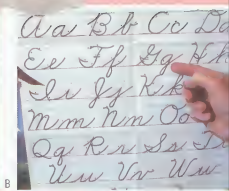 Aa Bb Cc D
Ee Ff Gg H
Ii Jj Kk
Mm Nn Oo
Qq Rr Ss T
Uu Vv Ww
B